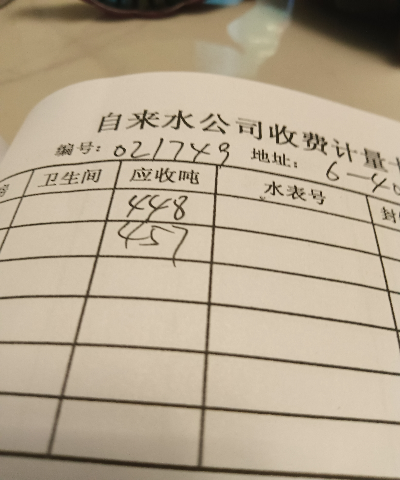 自来水公司收费计量卡
编号: 021749 地址: 6-40
卫生间 应收吨 水表号 封
448
457